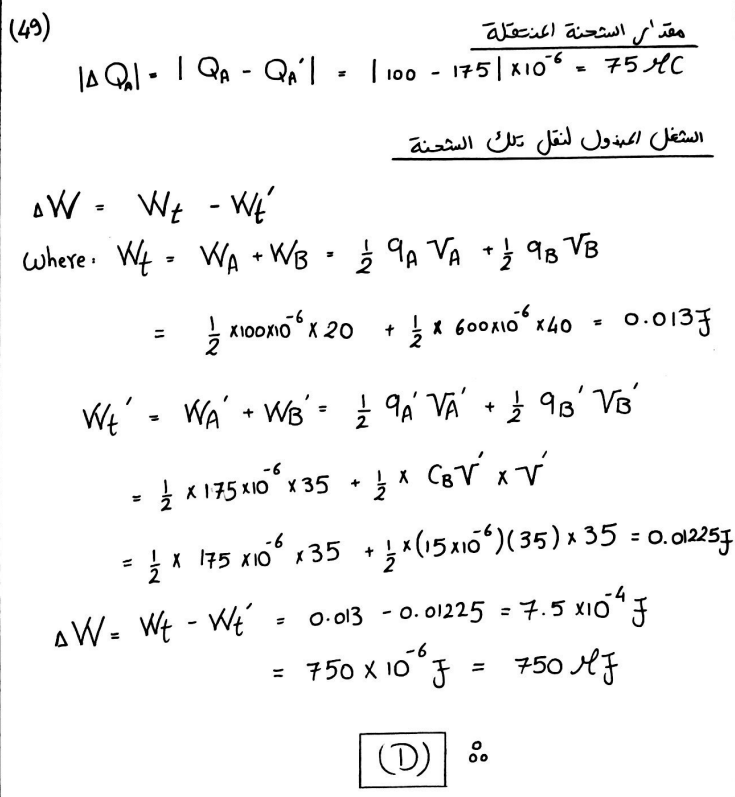 (49)
مقدار الشحنة المنتقلة
|ΔQ_A| = | Q_A - Q_A' | = | 100 - 175 | ×10⁻⁶ = 75 μC
الشغل المبذول لنقل تلك الشحنة
ΔW = W_t - W_t'
where: W_t = W_A + W_B = ½ q_A V_A + ½ q_B V_B
= ½ ×100×10⁻⁶ × 20 + ½ × 600×10⁻⁶ ×40 = 0.013 J
W_t' = W_A' + W_B' = ½ q_A' V_A' + ½ q_B' V_B'
= ½ × 175×10⁻⁶ × 35 + ½ × C_B V' × V'
= ½ × 175 ×10⁻⁶ ×35 + ½ ×(15×10⁻⁶)(35) × 35 = 0.01225 J
ΔW = W_t - W_t' = 0.013 - 0.01225 = 7.5 ×10⁻⁴ J
= 750 × 10⁻⁶ J = 750 μJ
(D) ஃ